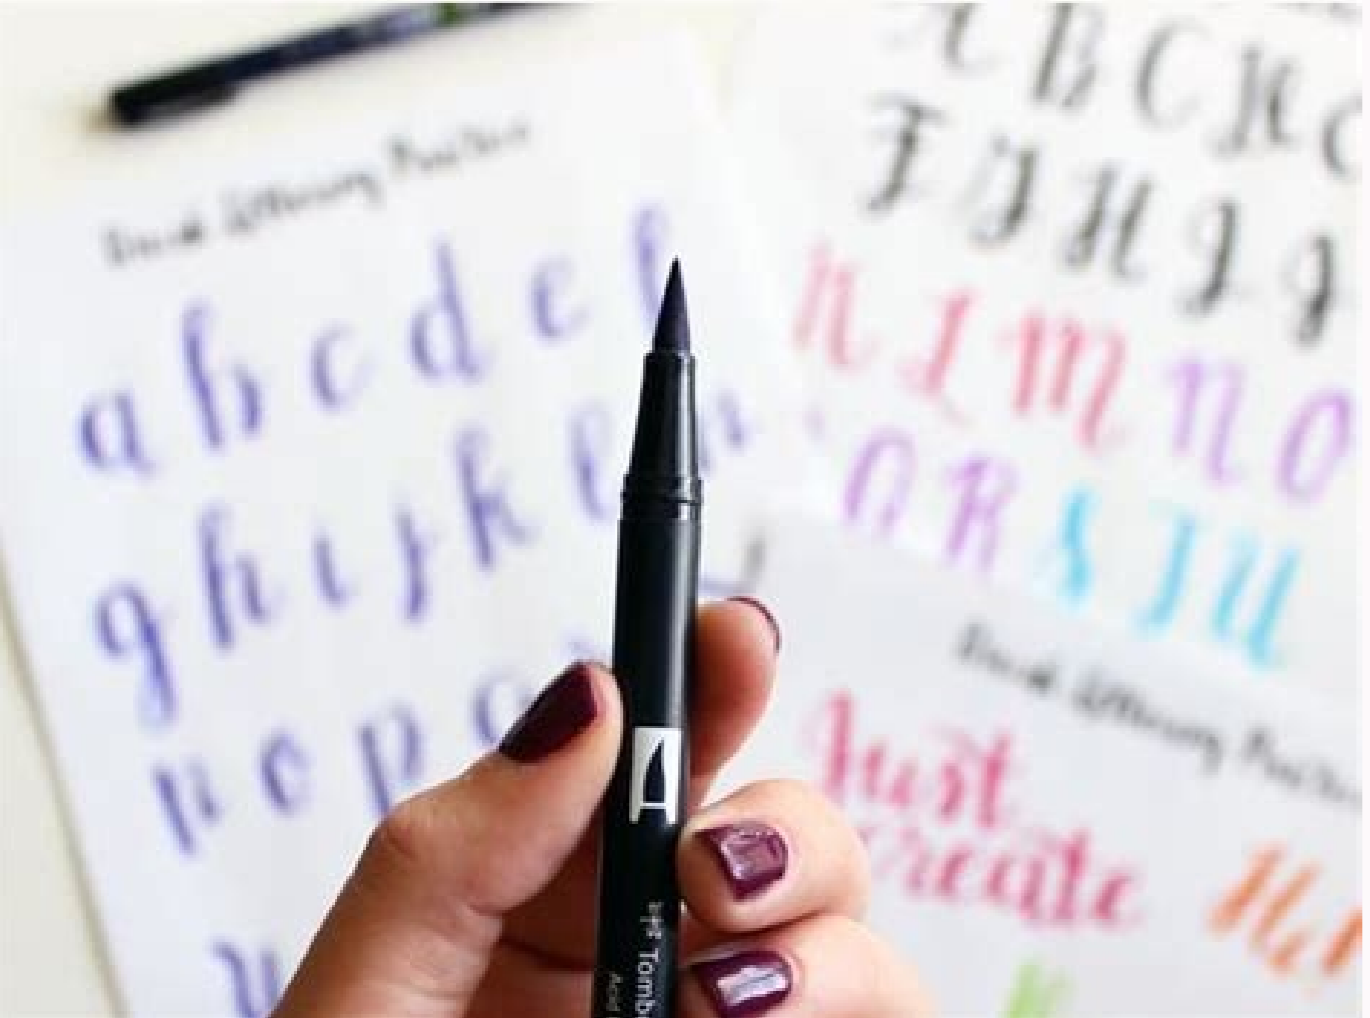 Brush lettering Practice
a b c d e f
g h i j k l m
n o p q
A B C
F G H I J
K L M N O
Q R S T U
Brush lettering Practice
Just
create
Tomb
Acid